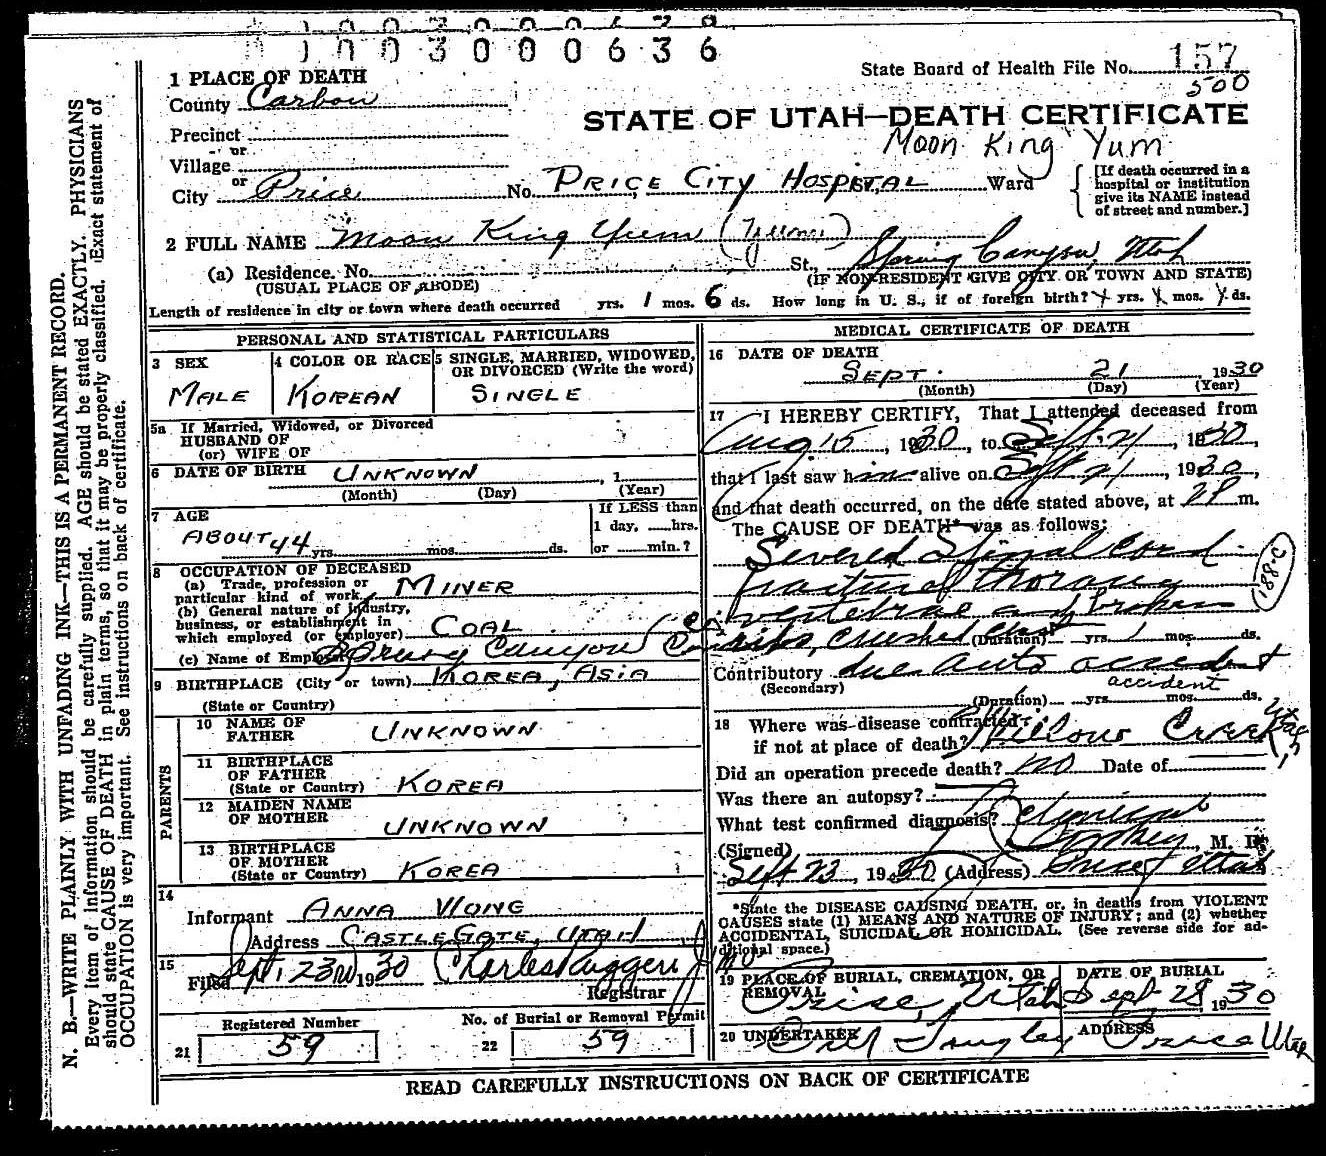 1003000636
State Board of Health File No. 157
500
1 PLACE OF DEATH
County Carbon
STATE OF UTAH—DEATH CERTIFICATE
Precinct
Moon King Yum
or
Village
or
City Price No. PRICE CITY HOSPITAL Ward
[If death occurred in a hospital or institution give its NAME instead of street and number.]
2 FULL NAME Moon King Yum
(a) Residence. No. St., Spring Canyon, Utah
(USUAL PLACE OF ABODE) (IF NON-RESIDENT GIVE CITY OR TOWN AND STATE)
Length of residence in city or town where death occurred yrs. 1 mos. 6 ds. How long in U. S., if of foreign birth? yrs. mos. ds.
PERSONAL AND STATISTICAL PARTICULARS
3 SEX
MALE
4 COLOR OR RACE
KOREAN
5 SINGLE, MARRIED, WIDOWED, OR DIVORCED (Write the word)
SINGLE
5a If Married, Widowed, or Divorced
HUSBAND OF
(or) WIFE OF
6 DATE OF BIRTH UNKNOWN , 1
(Month) (Day) (Year)
7 AGE
ABOUT 44 yrs. mos. ds.
If LESS than
1 day, hrs.
or min.?
8 OCCUPATION OF DECEASED
(a) Trade, profession or
particular kind of work MINER
(b) General nature of industry,
business, or establishment in
which employed (or employer) COAL
(c) Name of Employer Spring Canyon Coal Co.
9 BIRTHPLACE (City or town) KOREA, ASIA
(State or Country)
PARENTS
10 NAME OF
FATHER UNKNOWN
11 BIRTHPLACE
OF FATHER
(State or Country) KOREA
12 MAIDEN NAME
OF MOTHER UNKNOWN
13 BIRTHPLACE
OF MOTHER
(State or Country) KOREA
14
Informant ANNA WONG
Address CASTLEGATE, UTAH
15
Filed Sept. 23rd 1930 Charles Ruggeri
Registrar
Registered Number
21 59
No. of Burial or Removal Permit
22 59
MEDICAL CERTIFICATE OF DEATH
16 DATE OF DEATH
SEPT. 21 1930
(Month) (Day) (Year)
17 I HEREBY CERTIFY, That I attended deceased from
Aug. 15, 1930, to Sept. 21, 1930,
that I last saw him alive on Sept 21, 1930,
and that death occurred, on the date stated above, at 2P m.
The CAUSE OF DEATH* was as follows:
Severed Spinal Cord
fracture of thoracic
vertebrae and broken
ribs, crushed chest (Duration) yrs. 1 mos. ds.
188-C
Contributory due auto accident
(Secondary) accident
(Duration) yrs. mos. ds.
18 Where was disease contracted
if not at place of death? Willow Creek Utah
Did an operation precede death? NO Date of
Was there an autopsy?
What test confirmed diagnosis? Clinical
(Signed) , M. D.
Sept 23, 1930 (Address) Price, Utah
*State the DISEASE CAUSING DEATH, or, in deaths from VIOLENT
CAUSES state (1) MEANS AND NATURE OF INJURY; and (2) whether
ACCIDENTAL, SUICIDAL, OR HOMICIDAL. (See reverse side for ad-
ditional space.)
19 PLACE OF BURIAL, CREMATION, OR
REMOVAL
Price, Utah
DATE OF BURIAL
Sept 28 1930
20 UNDERTAKER
ADDRESS
Price Utah
READ CAREFULLY INSTRUCTIONS ON BACK OF CERTIFICATE
N. B.—WRITE PLAINLY WITH UNFADING INK—THIS IS A PERMANENT RECORD.
Every item of information should be carefully supplied. AGE should be stated EXACTLY. PHYSICIANS
should state CAUSE OF DEATH in plain terms, so that it may be properly classified. Exact statement of
OCCUPATION is very important. See instructions on back of certificate.